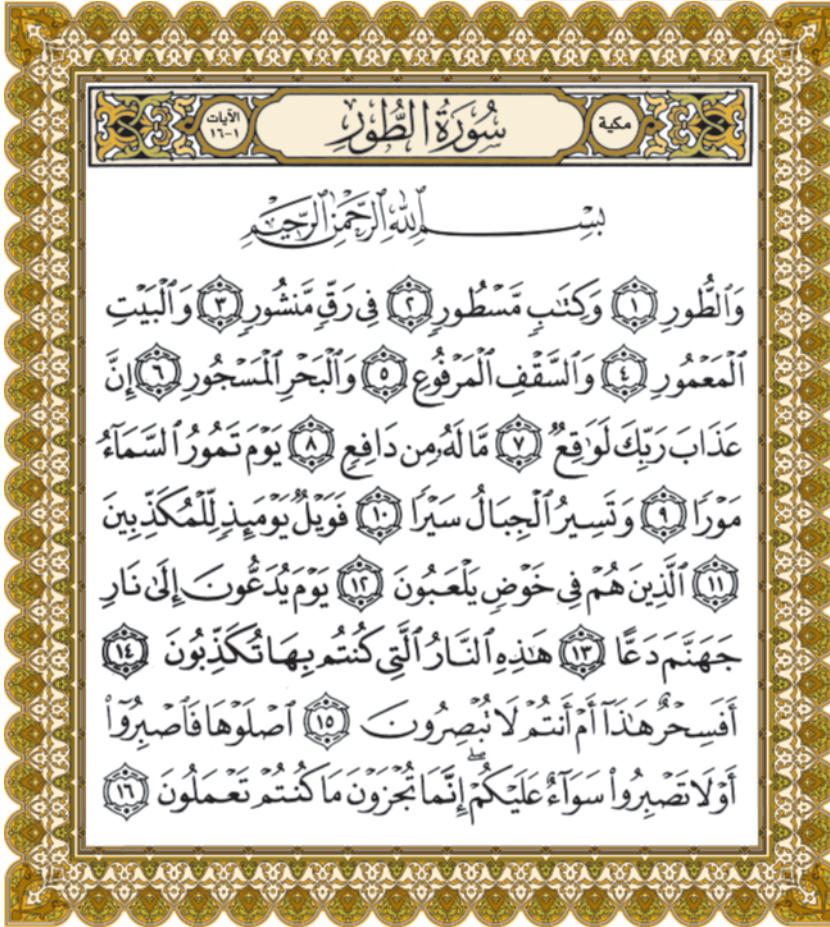 مكية
سُورَةُ الطُّورِ
الآيات ١-١٦
بِسْمِ ٱللَّهِ ٱلرَّحْمَٰنِ ٱلرَّحِيمِ
وَٱلطُّورِ ١ وَكِتَٰبٖ مَّسۡطُورٖ ٢ فِي رَقّٖ مَّنشُورٖ ٣ وَٱلۡبَيۡتِ
ٱلۡمَعۡمُورِ ٤ وَٱلسَّقۡفِ ٱلۡمَرۡفُوعِ ٥ وَٱلۡبَحۡرِ ٱلۡمَسۡجُورِ ٦ إِنَّ
عَذَابَ رَبِّكَ لَوَٰقِعٞ ٧ مَّا لَهُۥ مِن دَافِعٖ ٨ يَوۡمَ تَمُورُ ٱلسَّمَآءُ
مَوۡرٗا ٩ وَتَسِيرُ ٱلۡجِبَالُ سَيۡرٗا ١٠ فَوَيۡلٞ يَوۡمَئِذٖ لِّلۡمُكَذِّبِينَ
١١ ٱلَّذِينَ هُمۡ فِي خَوۡضٖ يَلۡعَبُونَ ١٢ يَوۡمَ يُدَعُّونَ إِلَىٰ نَارِ
جَهَنَّمَ دَعًّا ١٣ هَٰذِهِ ٱلنَّارُ ٱلَّتِي كُنتُم بِهَا تُكَذِّبُونَ ١٤
أَفَسِحۡرٌ هَٰذَآ أَمۡ أَنتُمۡ لَا تُبۡصِرُونَ ١٥ ٱصۡلَوۡهَا فَٱصۡبِرُوٓاْ
أَوۡ لَا تَصۡبِرُواْ سَوَآءٌ عَلَيۡكُمۡۖ إِنَّمَا تُجۡزَوۡنَ مَا كُنتُمۡ تَعۡمَلُونَ ١٦